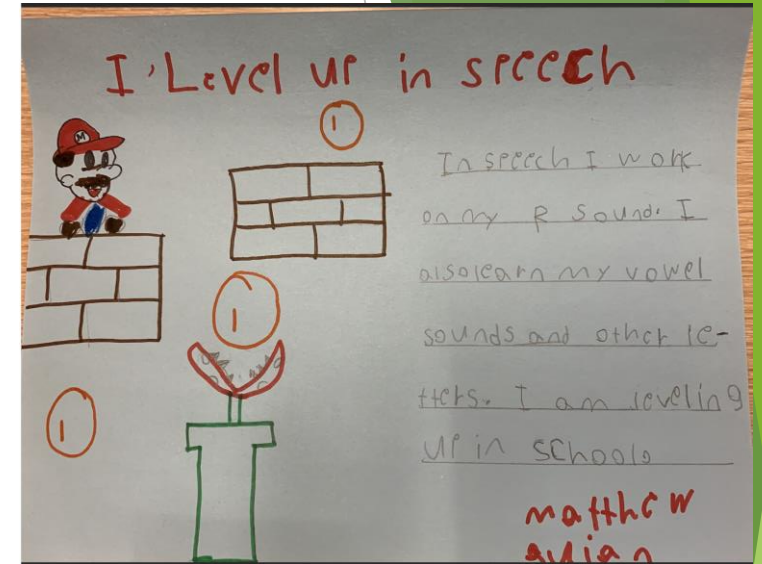 I Level up in speech
M
In speech I work
on my R sound. I
also learn my vowel
sounds and other le-
tters. I am leveling
up in school.
matthew